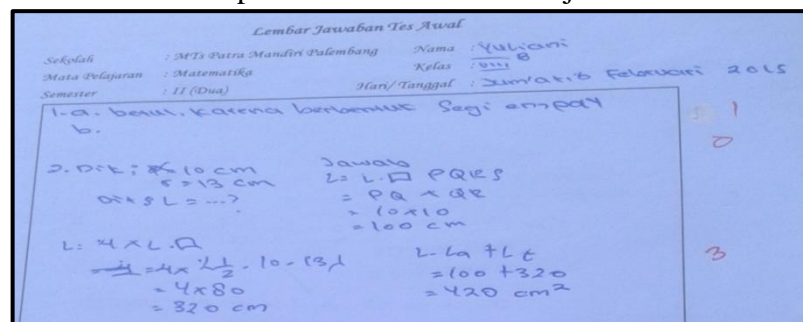 Lembar Jawaban Tes Awal
Sekolah : MTs Patra Mandiri Palembang Nama : Yuliani
Mata Pelajaran : Matematika Kelas : VIII B
Semester : II (Dua) Hari/Tanggal : Jum'at 6 Februari 2015
1. a. betul, karena berbentuk segi empat
b.
1
0
2. Dik : 10 cm
s = 13 cm
Dit : L = ...?
Jawab
L = L. □ PQRS
= PQ x QR
= 10 x 10
= 100 cm
L = 4 x L. △
= 4 x 1/2 . 10 . 13
= 4 x 80
= 320 cm
L = La + Lt
= 100 + 320
= 420 cm²
3